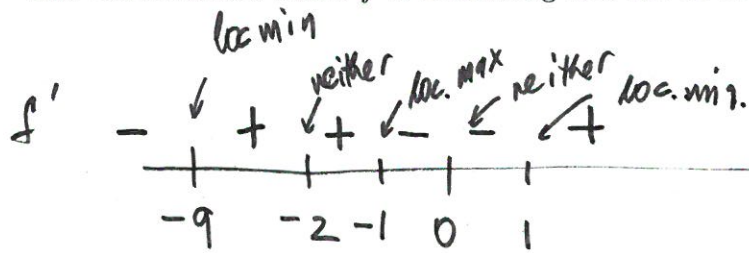 loc min
neither loc. max neither loc. min.
f' - + + - - +
-9 -2 -1 0 1